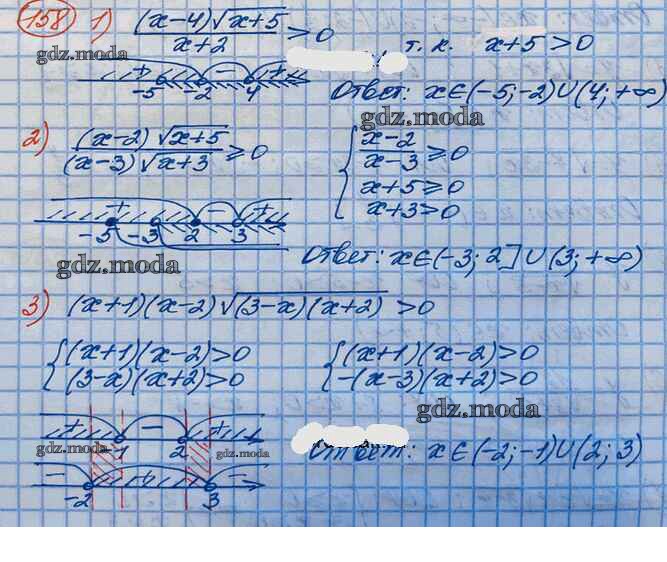 158 1) (x-4)√x+5 / x+2 > 0, т. к. x+5 > 0
gdz.moda
+ - +
-5 -2 4
Ответ: x∈(-5;-2)∪(4;+∞)
gdz.moda
2) (x-2)√x+5 / (x-3)√x+3 ⩾ 0
{ x-2 / x-3 ⩾ 0
x+5 ⩾ 0
x+3 > 0
+ - +
-5 -3 2 3
gdz.moda
Ответ: x∈(-3; 2]∪(3;+∞)
3) (x+1)(x-2)√(3-x)(x+2) > 0
{ (x+1)(x-2)>0
(3-x)(x+2)>0
{ (x+1)(x-2)>0
-(x-3)(x+2)>0
gdz.moda
+ - +
-1 2
gdz.moda
gdz.moda
- + -
-2 3
Ответ: x∈(-2;-1)∪(2; 3)